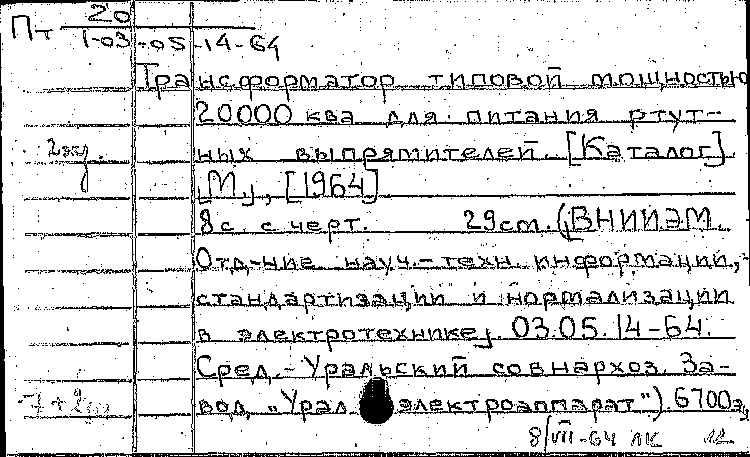 Пт 20
1-03-05-14-64
Трансформатор типовой мощностью
20000 ква для питания ртут-
2экз.
ных выпрямителей. [Каталог]
[М.], [1964]
8 с. с черт. 29 см. (ВНИИЭМ.
Отд-ние науч.-техн. информации,
стандартизации и нормализации
в электротехнике]. 03.05.14-64.
Сред.-Уральский совнархоз. За-
вод "Уралэлектроаппарат"). 6700э,
8/VII-64 ЛК